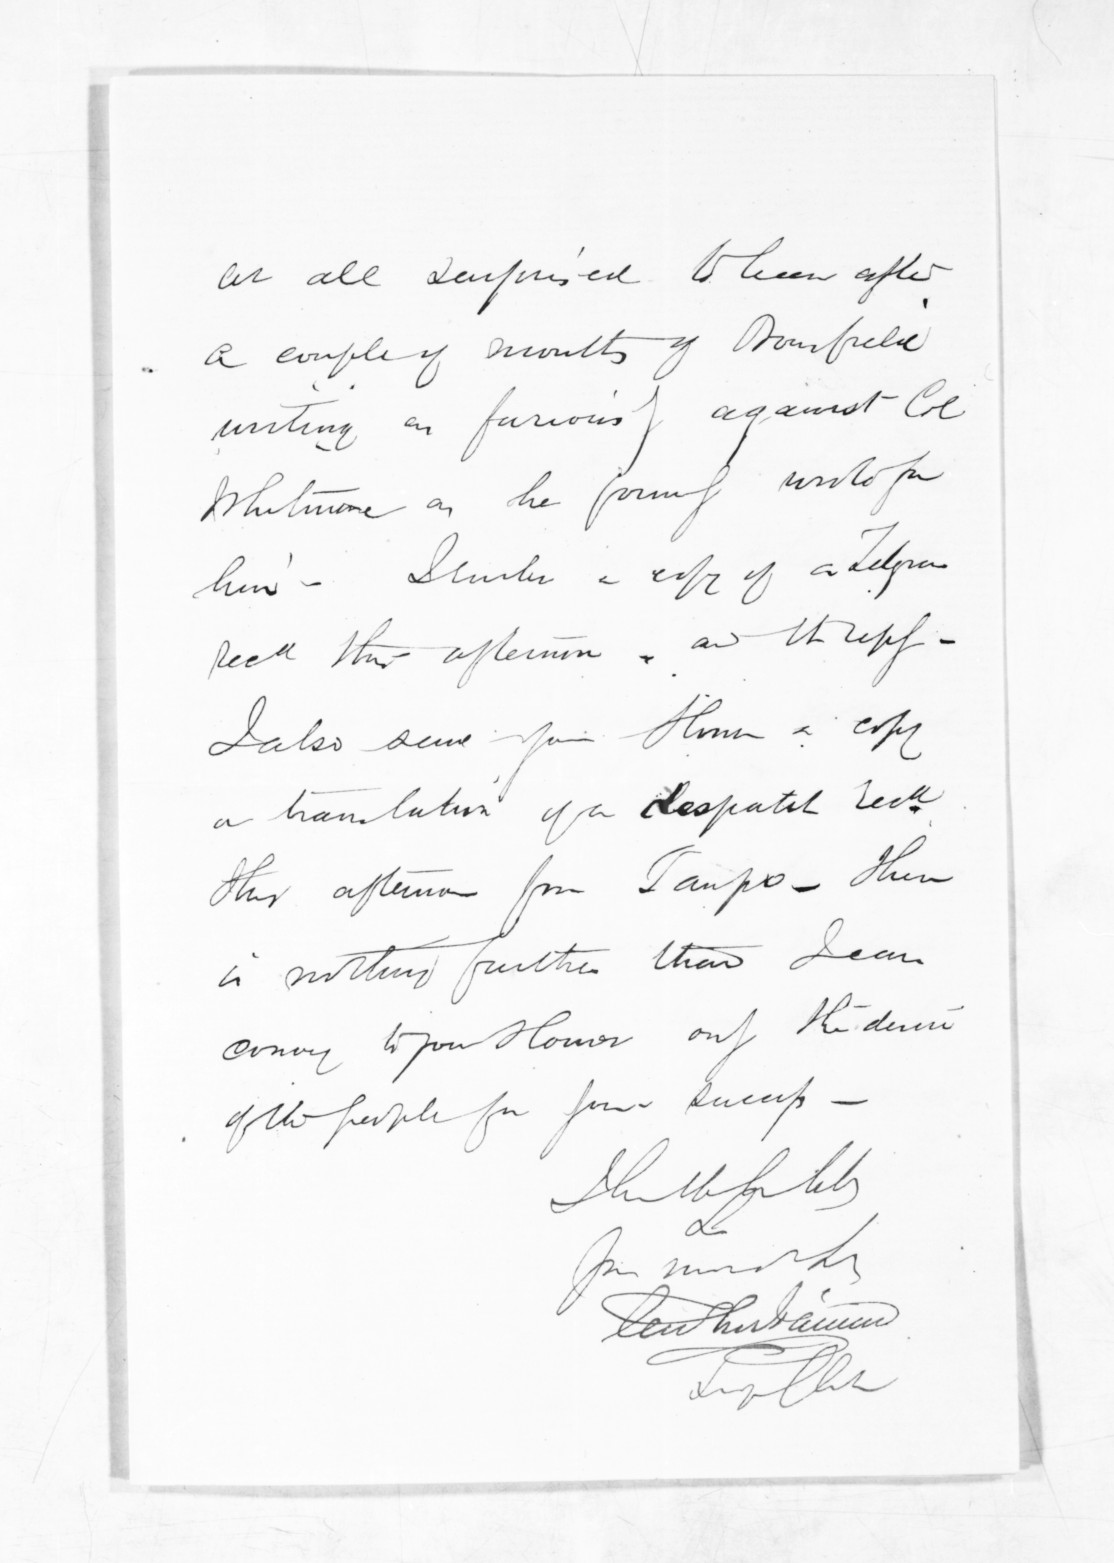 at all surprised to hear after
a couple of months of Bousfield
writing as furiously against Col
Whitmore as he formerly wrote for
him - I enclose a copy of a Telegram
recd this afternoon . and the reply -
I also send your Honor a copy
a translation of a despatch recd
this afternoon from Taupo - there
is nothing further than I can
convey to your Honor only the desire
of the people for your success -
I have the honor to be
Your most obt